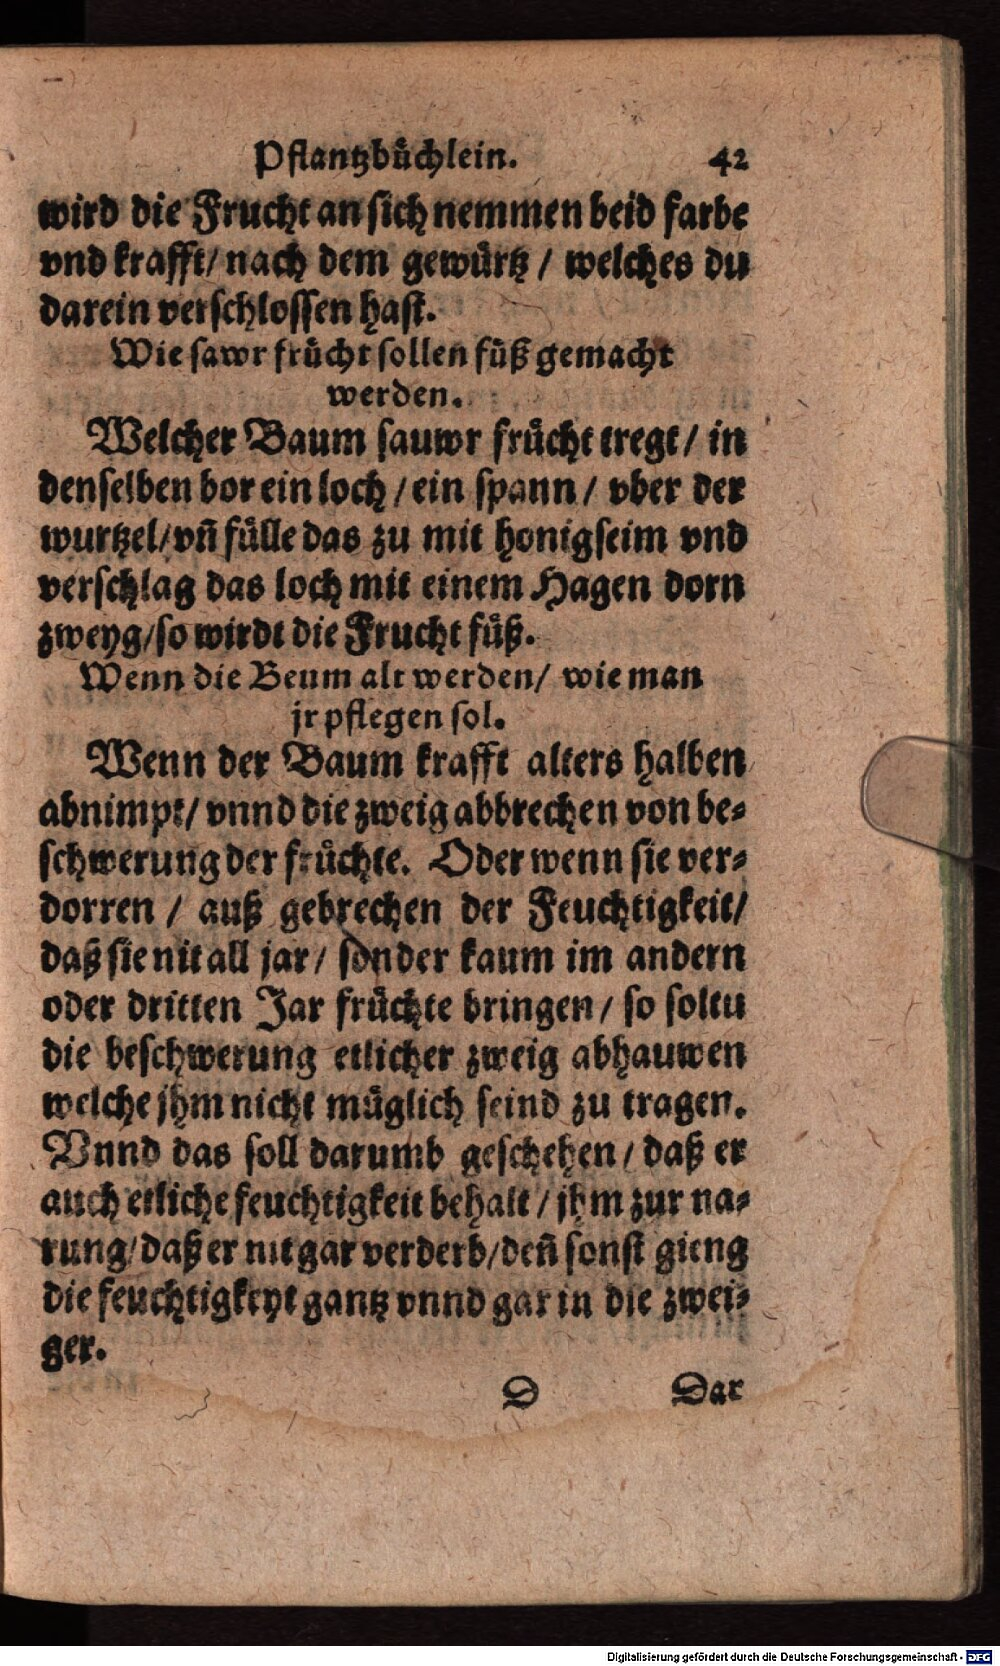 Pflantzbuͤchlein. 42
wird die Frucht an sich nemmen beid farbe
vnd krafft/ nach dem gewuͤrtz / welches du
darein verschlossen hast.
Wie sawr fruͤcht sollen suͤß gemacht
werden.
Welcher Baum sauwr fruͤcht tregt/ in
denselben bor ein loch / ein spann / vber der
wurtzel/ vñ fuͤlle das zu mit honigseim vnd
verschlag das loch mit einem Hagen dorn
zweyg/ so wirdt die Frucht suͤß.
Wenn die Beum alt werden/ wie man
jr pflegen sol.
Wenn der Baum krafft alters halben
abnimpt/ vnnd die zweig abbrechen von be-
schwerung der fruͤchte. Oder wenn sie ver-
dorren / auß gebrechen der Feuchtigkeit/
daß sie nit all jar / sonder kaum im andern
oder dritten Jar fruͤchte bringen / so soltu
die beschwerung etlicher zweig abhauwen
welche jhm nicht muͤglich seind zu tragen.
Vnnd das soll darumb geschehen / daß er
auch etliche feuchtigkeit behalt / jhm zur na-
rung/ daß er nit gar verderb/ deñ sonst gieng
die feuchtigkeyt gantz vnnd gar in die zwei-
ger.
D Dar
Digitalisierung gefördert durch die Deutsche Forschungsgemeinschaft - DFG